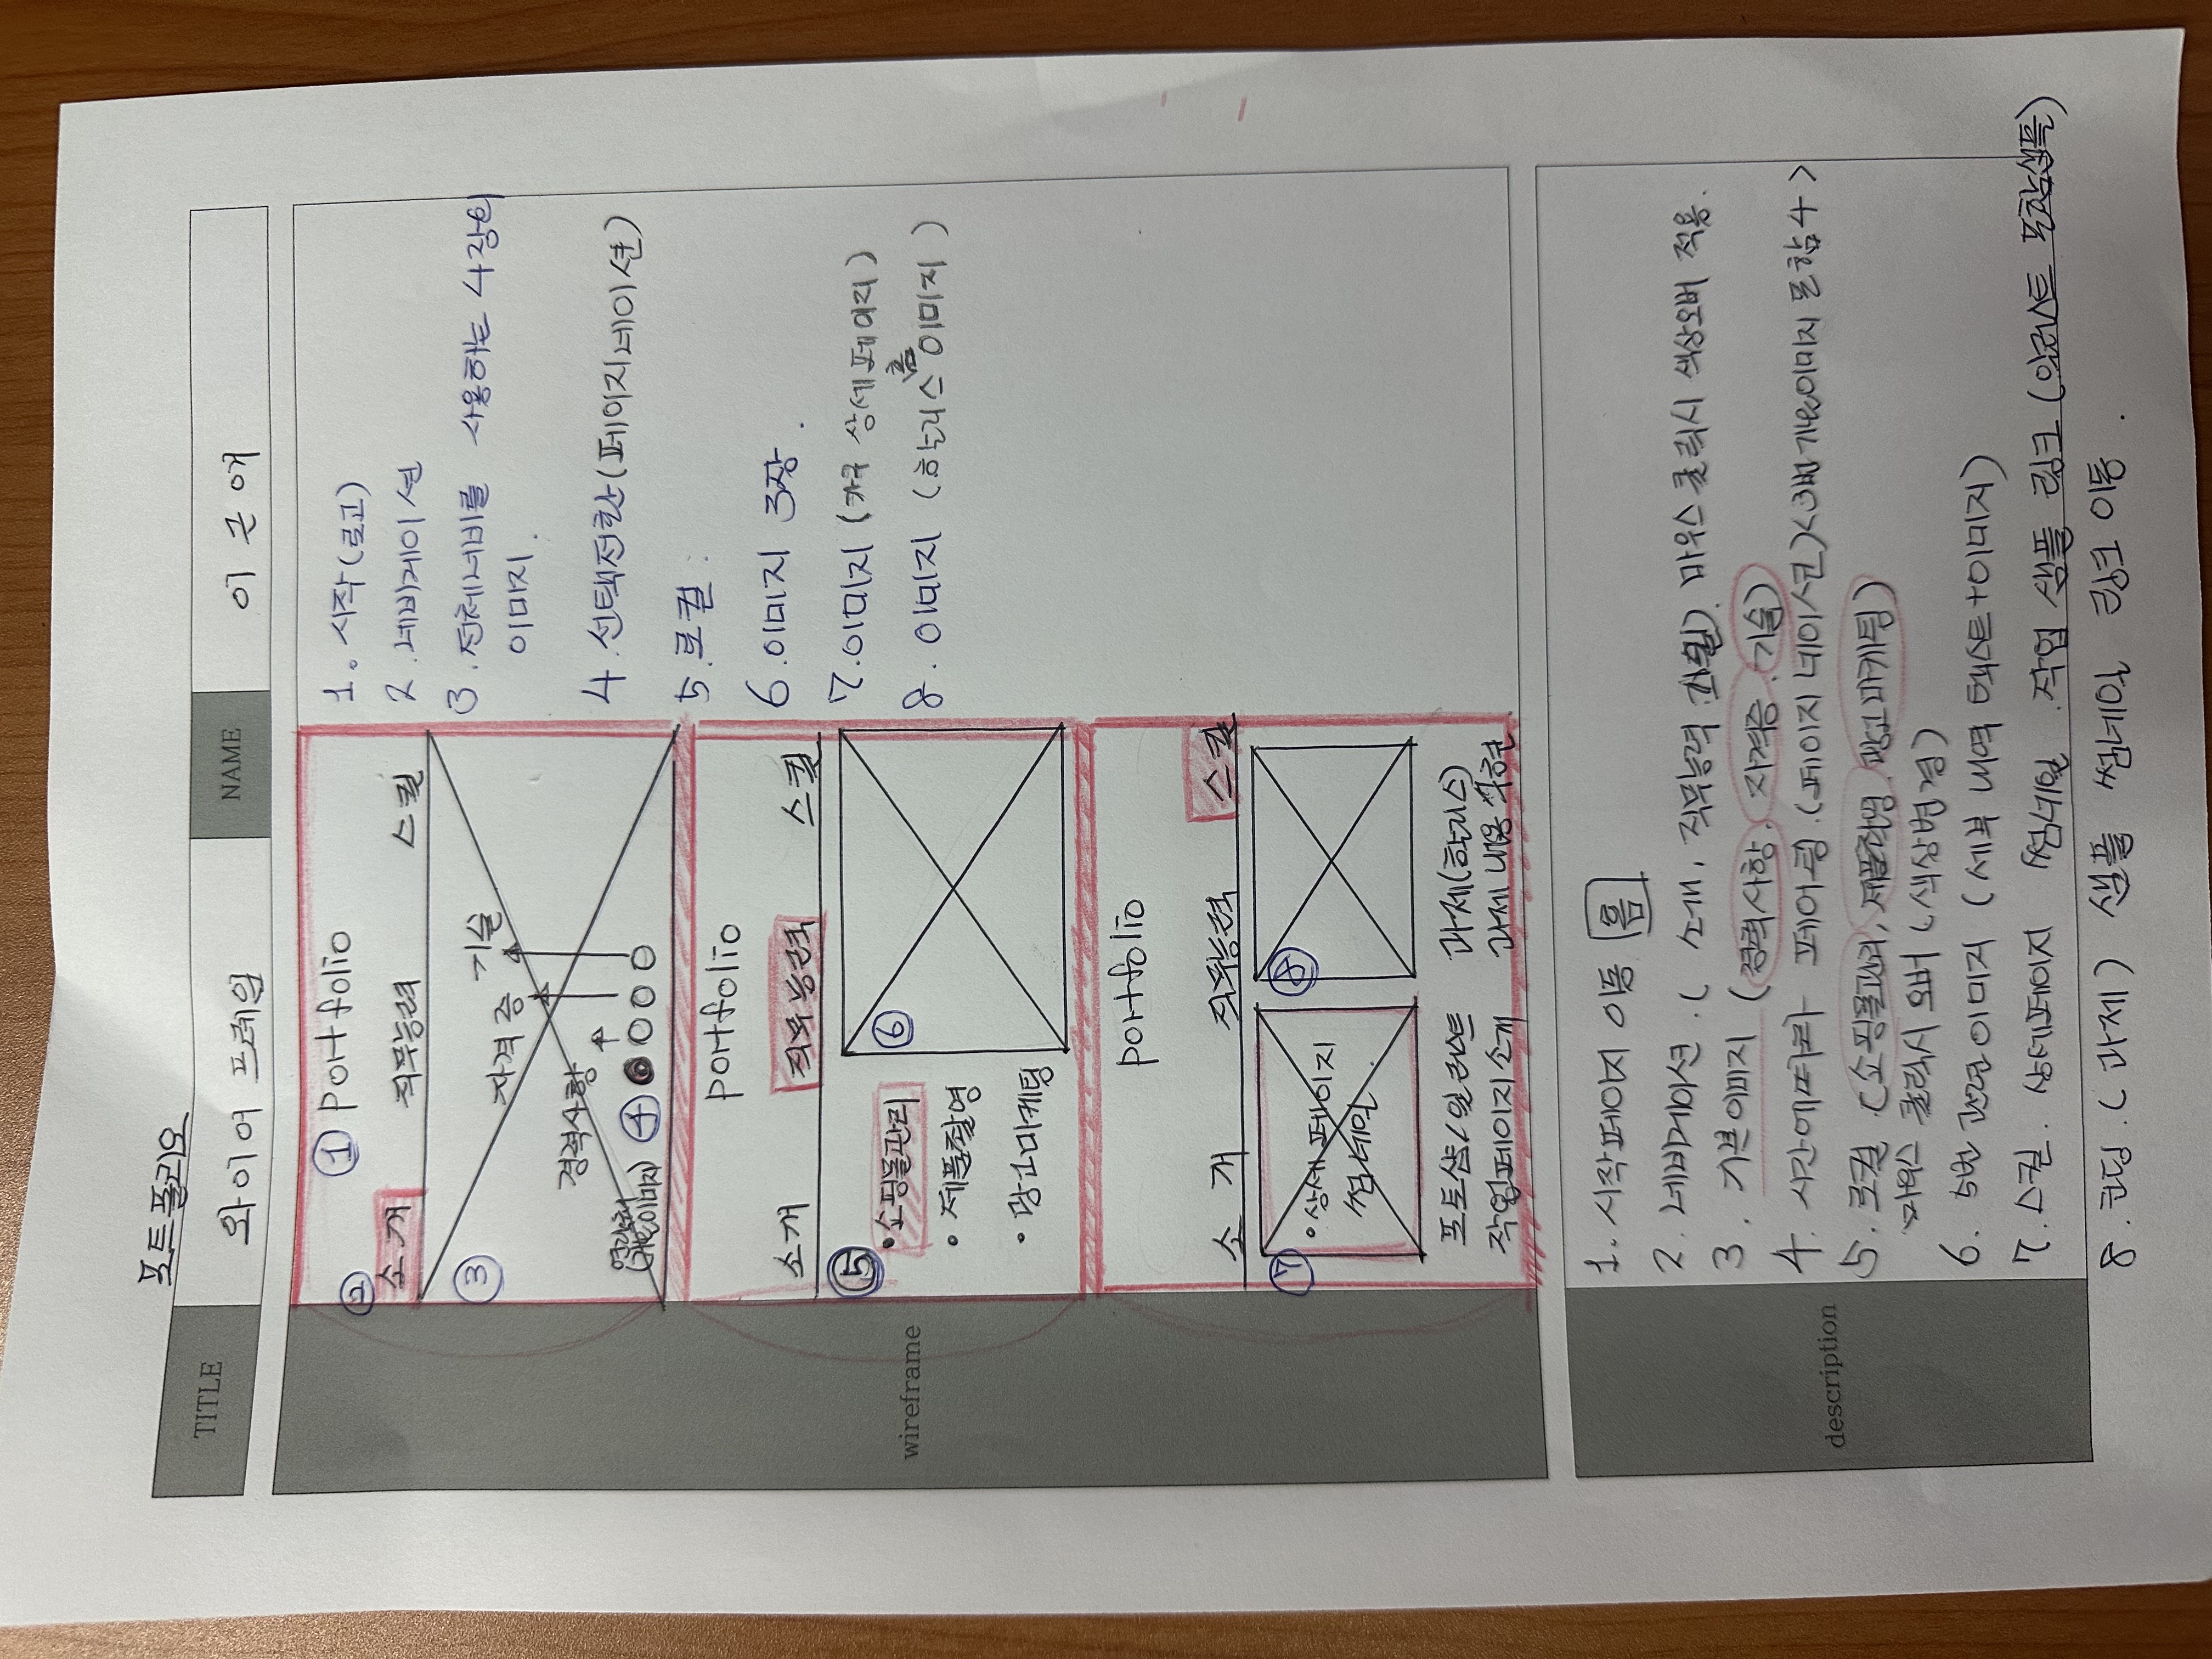 포트폴리오
TITLE
와이어 프레임
NAME
이 근 애
wireframe
① portfolio
②
소개 직무능력 스킬
③
기술
자격증
경력사항
연락처
(개요이미지) ④
portfolio
소개 직무능력 스킬
⑤
• 쇼핑몰관리
⑥
• 제품촬영
• 광고마케팅
portfolio
소 개 직무능력 스킬
⑦ ⑧
• 상세페이지
썸네일.
포토샵/일러스트
작업페이지소개
과제(할리스)
과제 내용 구현
1. 시작(로고)
2. 네비게이션
3. 전체너비를 사용하는 4장의
이미지.
4. 선택전환(페이지네이션)
5. 로컬.
6. 이미지 3장.
7. 이미지 (가구 상세페이지)
8. 이미지 (할리스 홈 이미지)
description
1. 시작페이지 이동 홈
2. 네비게이션.( 소개, 직무능력 스킬). 마우스 클릭시 색상오버 적용.
3. 기본이미지 (경력사항, 자격증, 기술)
4. 시간에따라 페어링.(페이지네이션)<3번 개요이미지 포함 4>
5. 로컬.(쇼핑몰관리, 제품촬영, 광고마케팅)
마우스 클릭시 오버 (색상변경)
6. 5번 관련이미지 (세부 내역 텍스트+이미지)
7. 스킬. 상세페이지 썸네일. 작업 샘플 링크 (일러스트 포함샘플)
8. 코딩.(과제) 샘플 썸네일 링크 이동.